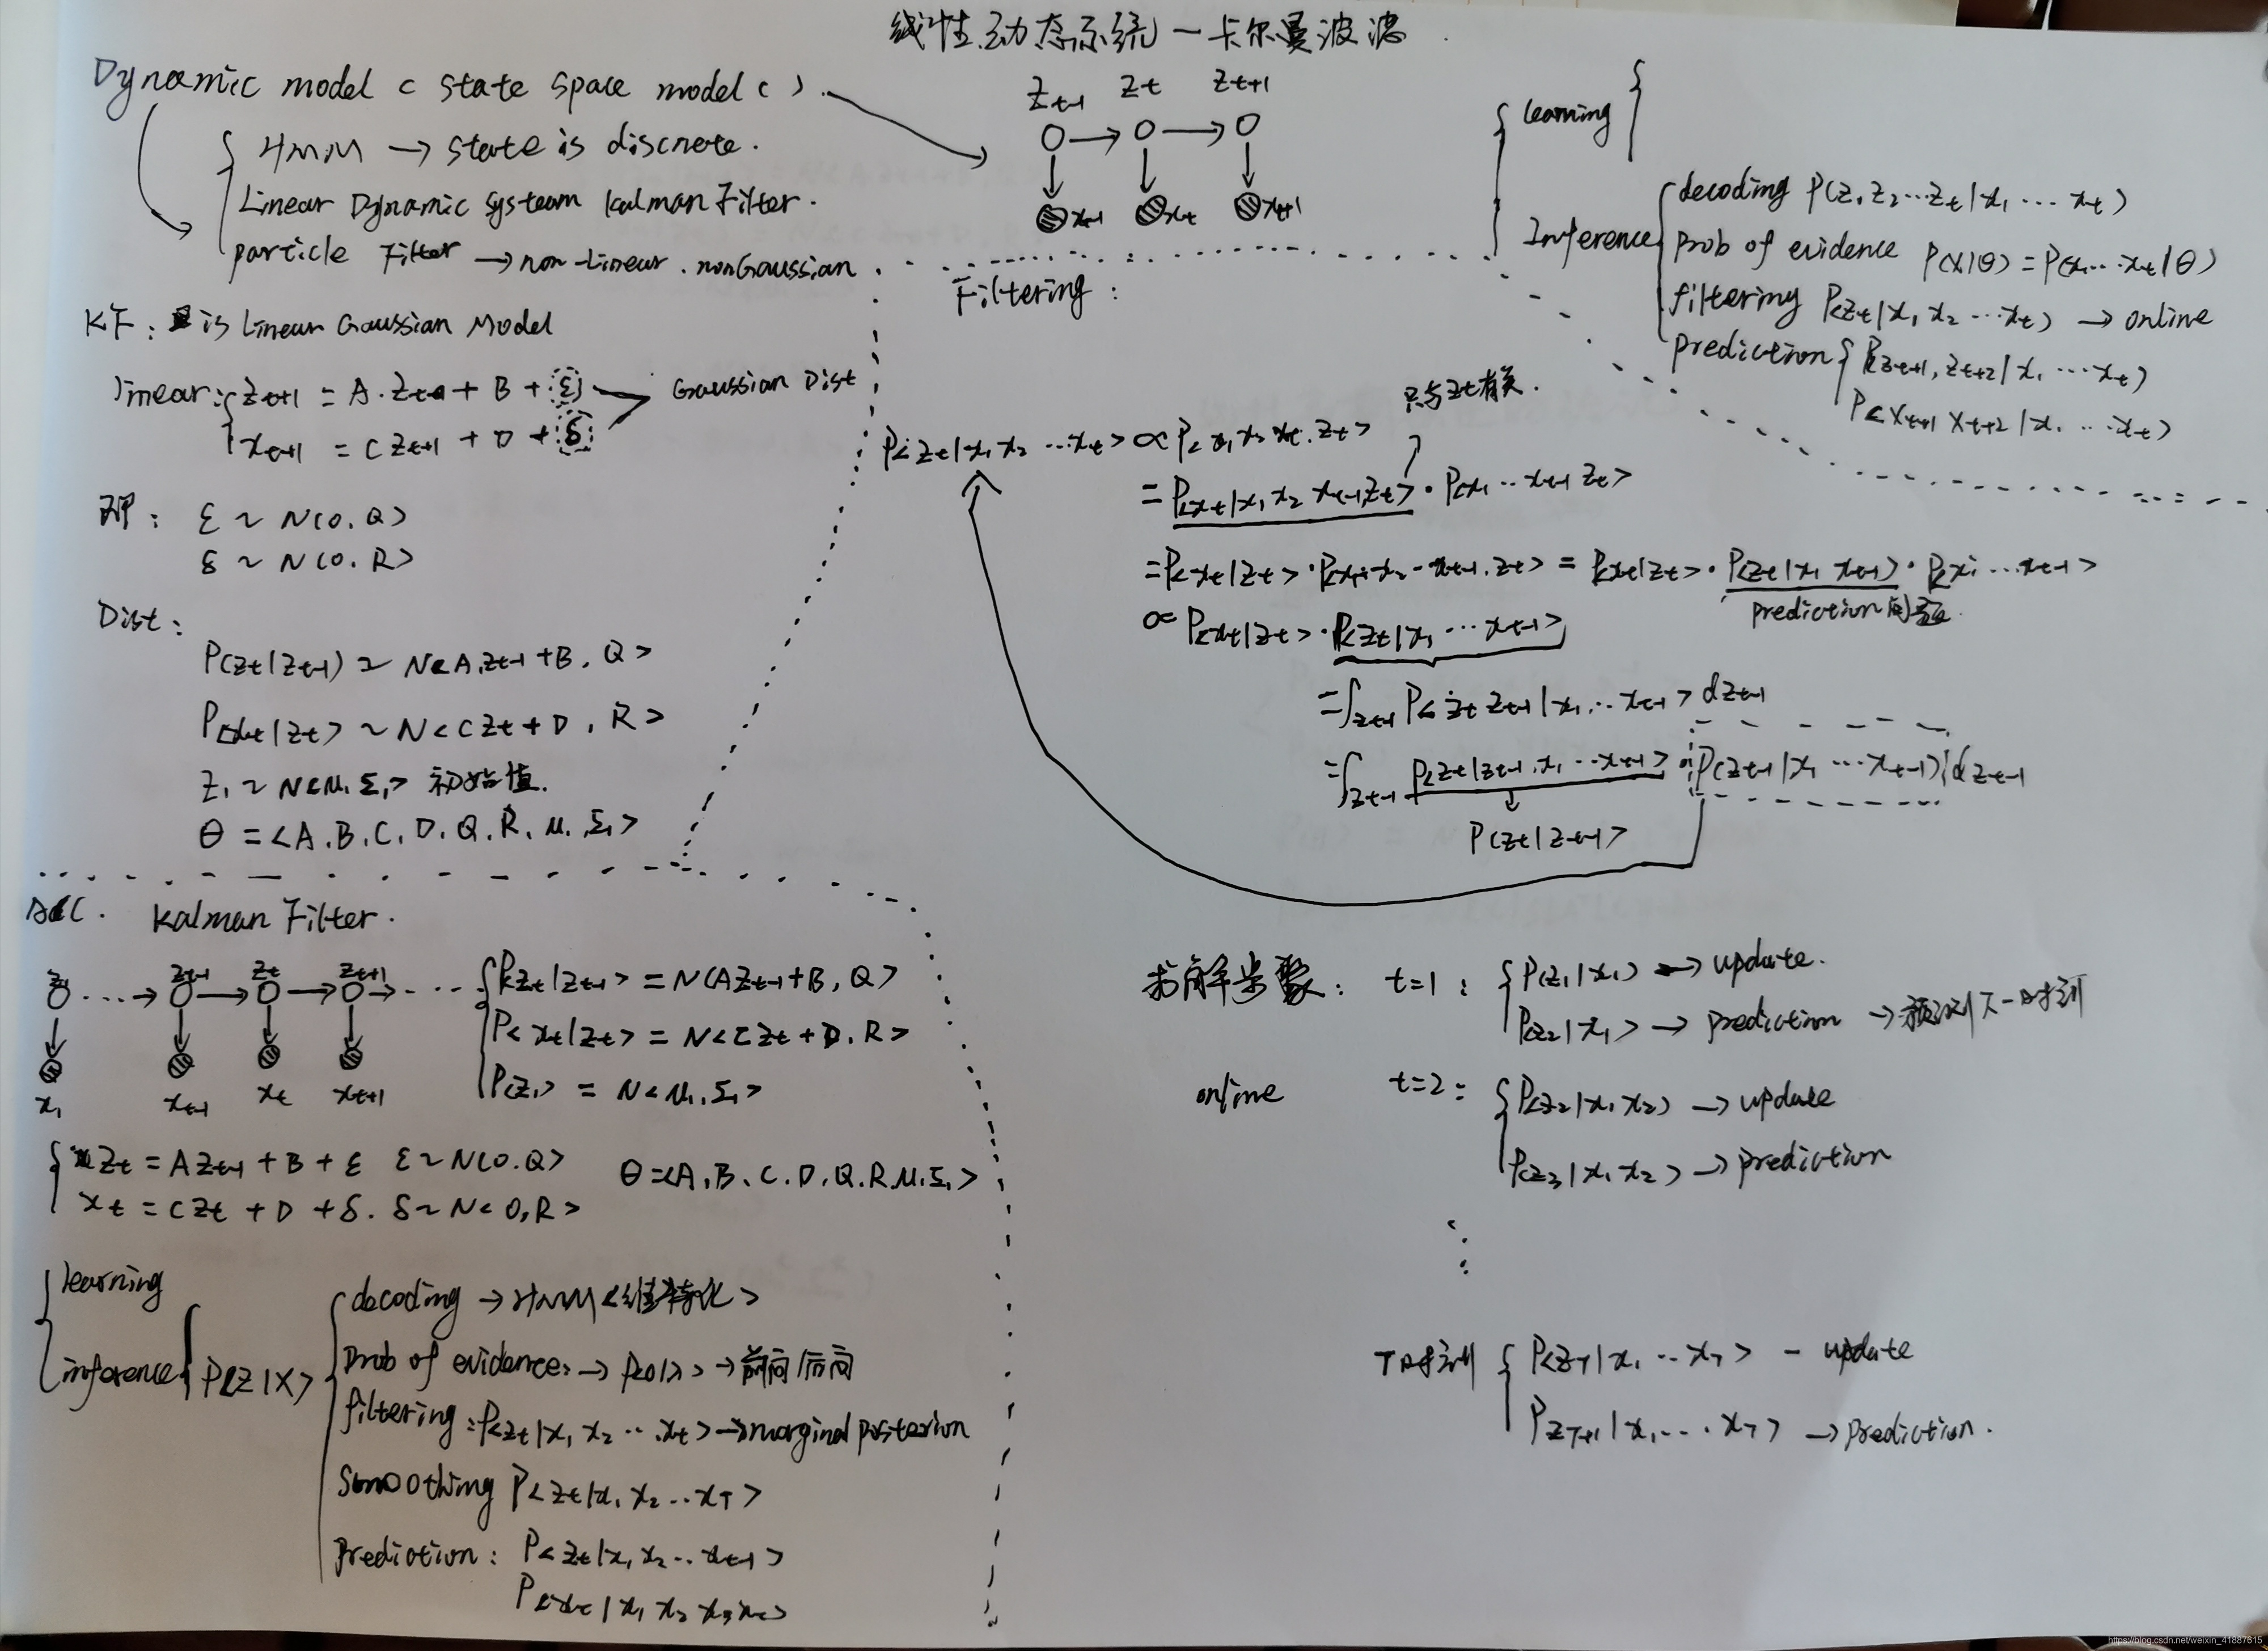 线性动态系统—卡尔曼波滤.
Dynamic model ( state space model ( ) .
{ HMM → state is discrete.
Linear Dynamic Systeam Kalman Filter.
particle Filter → non-Linear. nonGaussian
Z_{t-1} Z_t Z_{t+1}
x_{t-1} x_t x_{t+1}
{ learning {
Inference { decoding P(Z_1 Z_2 ... Z_t | x_1 ... x_t)
prob of evidence P(X|θ) = P(x_1 ... x_t | θ)
filtering P(Z_t | x_1 x_2 ... x_t) → online
prediction { P(Z_{t+1}, Z_{t+2} | x_1 ... x_t)
P(x_{t+1} x_{t+2} | x_1 ... x_t)
KF: is Linear Gaussian Model
linear: { Z_{t+1} = A·Z_t + B + ε → Gaussian Dist
x_{t+1} = C Z_{t+1} + D + δ
即: ε ~ N(0, Q)
δ ~ N(0, R)
Dist:
P(Z_t | Z_{t-1}) ~ N(A.Z_{t-1} + B, Q)
P(x_t | Z_t) ~ N(C Z_t + D, R)
Z_1 ~ N(μ_1 Σ_1) 初始值.
θ = (A.B.C.D.Q.R.μ_1.Σ_1)
Filtering:
只与Z_t有关.
P(Z_t | x_1 x_2 ... x_t) ∝ P(x_1 x_2 x_t. Z_t)
= P(x_t | x_1 x_2 x_{t-1}, Z_t) · P(x_1 ... x_{t-1} Z_t)
= P(x_t | Z_t) · P(x_1 x_2 ... x_{t-1}, Z_t) = P(x_t | Z_t) · P(Z_t | x_1 x_{t-1}) · P(x_1 ... x_{t-1})
prediction问题.
∝ P(x_t | Z_t) · P(Z_t | x_1 ... x_{t-1})
= ∫_{Z_{t-1}} P(Z_t Z_{t-1} | x_1 ... x_{t-1}) dZ_{t-1}
= ∫_{Z_{t-1}} P(Z_t | Z_{t-1}, x_1 ... x_{t-1}) · P(Z_{t-1} | x_1 ... x_{t-1}) dZ_{t-1}
↓
P(Z_t | Z_{t-1})
求解步聚: t=1: { P(Z_1 | x_1) → update.
P(Z_2 | x_1) → prediction → 预测下一时刻
online t=2: { P(Z_2 | x_1 x_2) → update
P(Z_3 | x_1 x_2) → prediction
⋮
T时刻 { P(Z_T | x_1 ... x_T) – update
P(Z_{T+1} | x_1 ... x_T) → prediction.
Kalman Filter.
Z_1 ... → Z_{t-1} → Z_t → Z_{t+1} → ...
x_1 x_{t-1} x_t x_{t+1}
{ P(Z_t | Z_{t-1}) = N(A Z_{t-1} + B, Q)
P(x_t | Z_t) = N(C Z_t + D. R)
P(Z_1) = N(μ_1. Σ_1)
{ Z_t = A Z_{t-1} + B + ε ε ~ N(0.Q) θ = (A.B.C.D.Q.R.μ_1.Σ_1)
x_t = C Z_t + D + δ. δ ~ N(0, R)
{ learning
inference { P(Z | X)
{ decoding → HMM (维特化)
prob of evidence: → P(O|λ) → 前向/后向
filtering: P(Z_t | x_1 x_2 ... x_t) → marginal posterion
Smoothing P(Z_t | x_1 x_2 ... x_T)
prediction: P(Z_t | x_1 x_2 ... x_{t-1})
https://blog.csdn.net/weixin_41887815